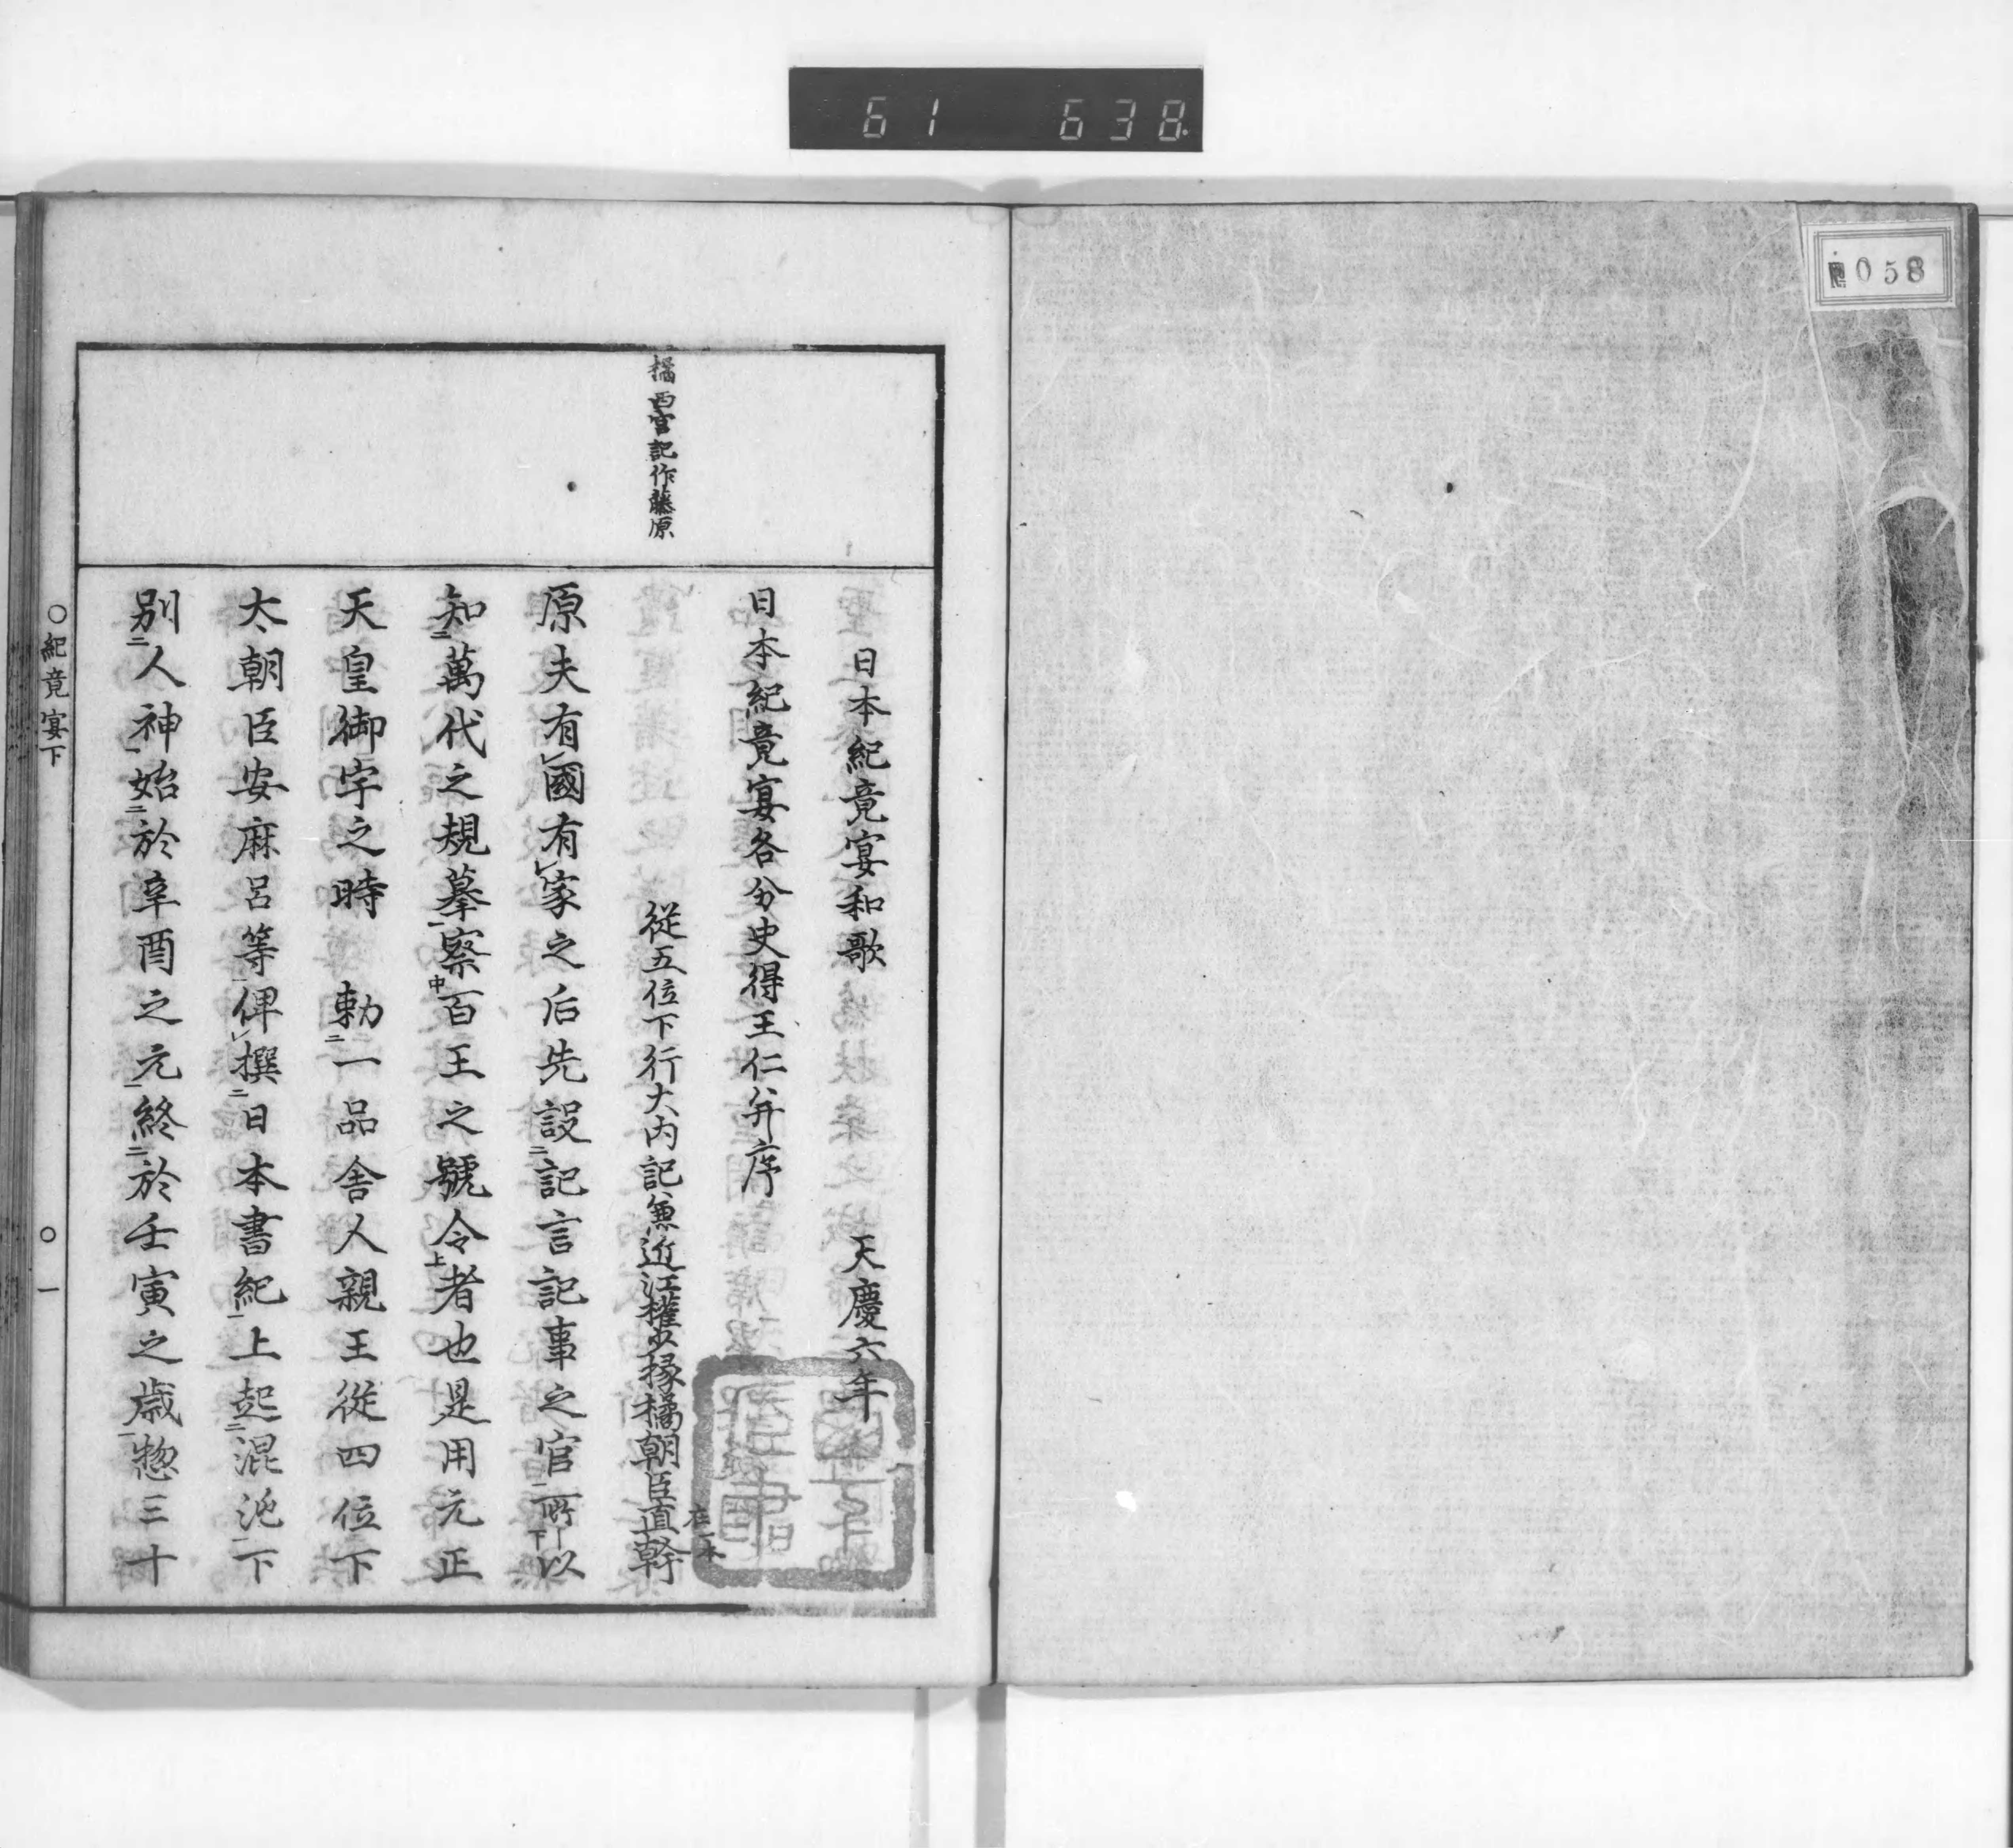 61 638
058
日本紀竟宴和歌 天慶六年
日本紀竟宴各分史得王仁并序
從五位下行大内記兼近江權少掾橘朝臣直幹
在一本
橘西宮記作藤原
原夫有レ國有レ家之后先設二記言記事之官一所下以
知二萬代之規摹一察中百王之號令上者也是用元正
天皇御宇之時 勅二一品舍人親王從四位下
太朝臣安麻呂等一俾レ撰二日本書紀一上起二混沌一下
別二人神一始二於辛酉之元一終二於壬寅之歳一惣三十
○紀竟宴下 ○一